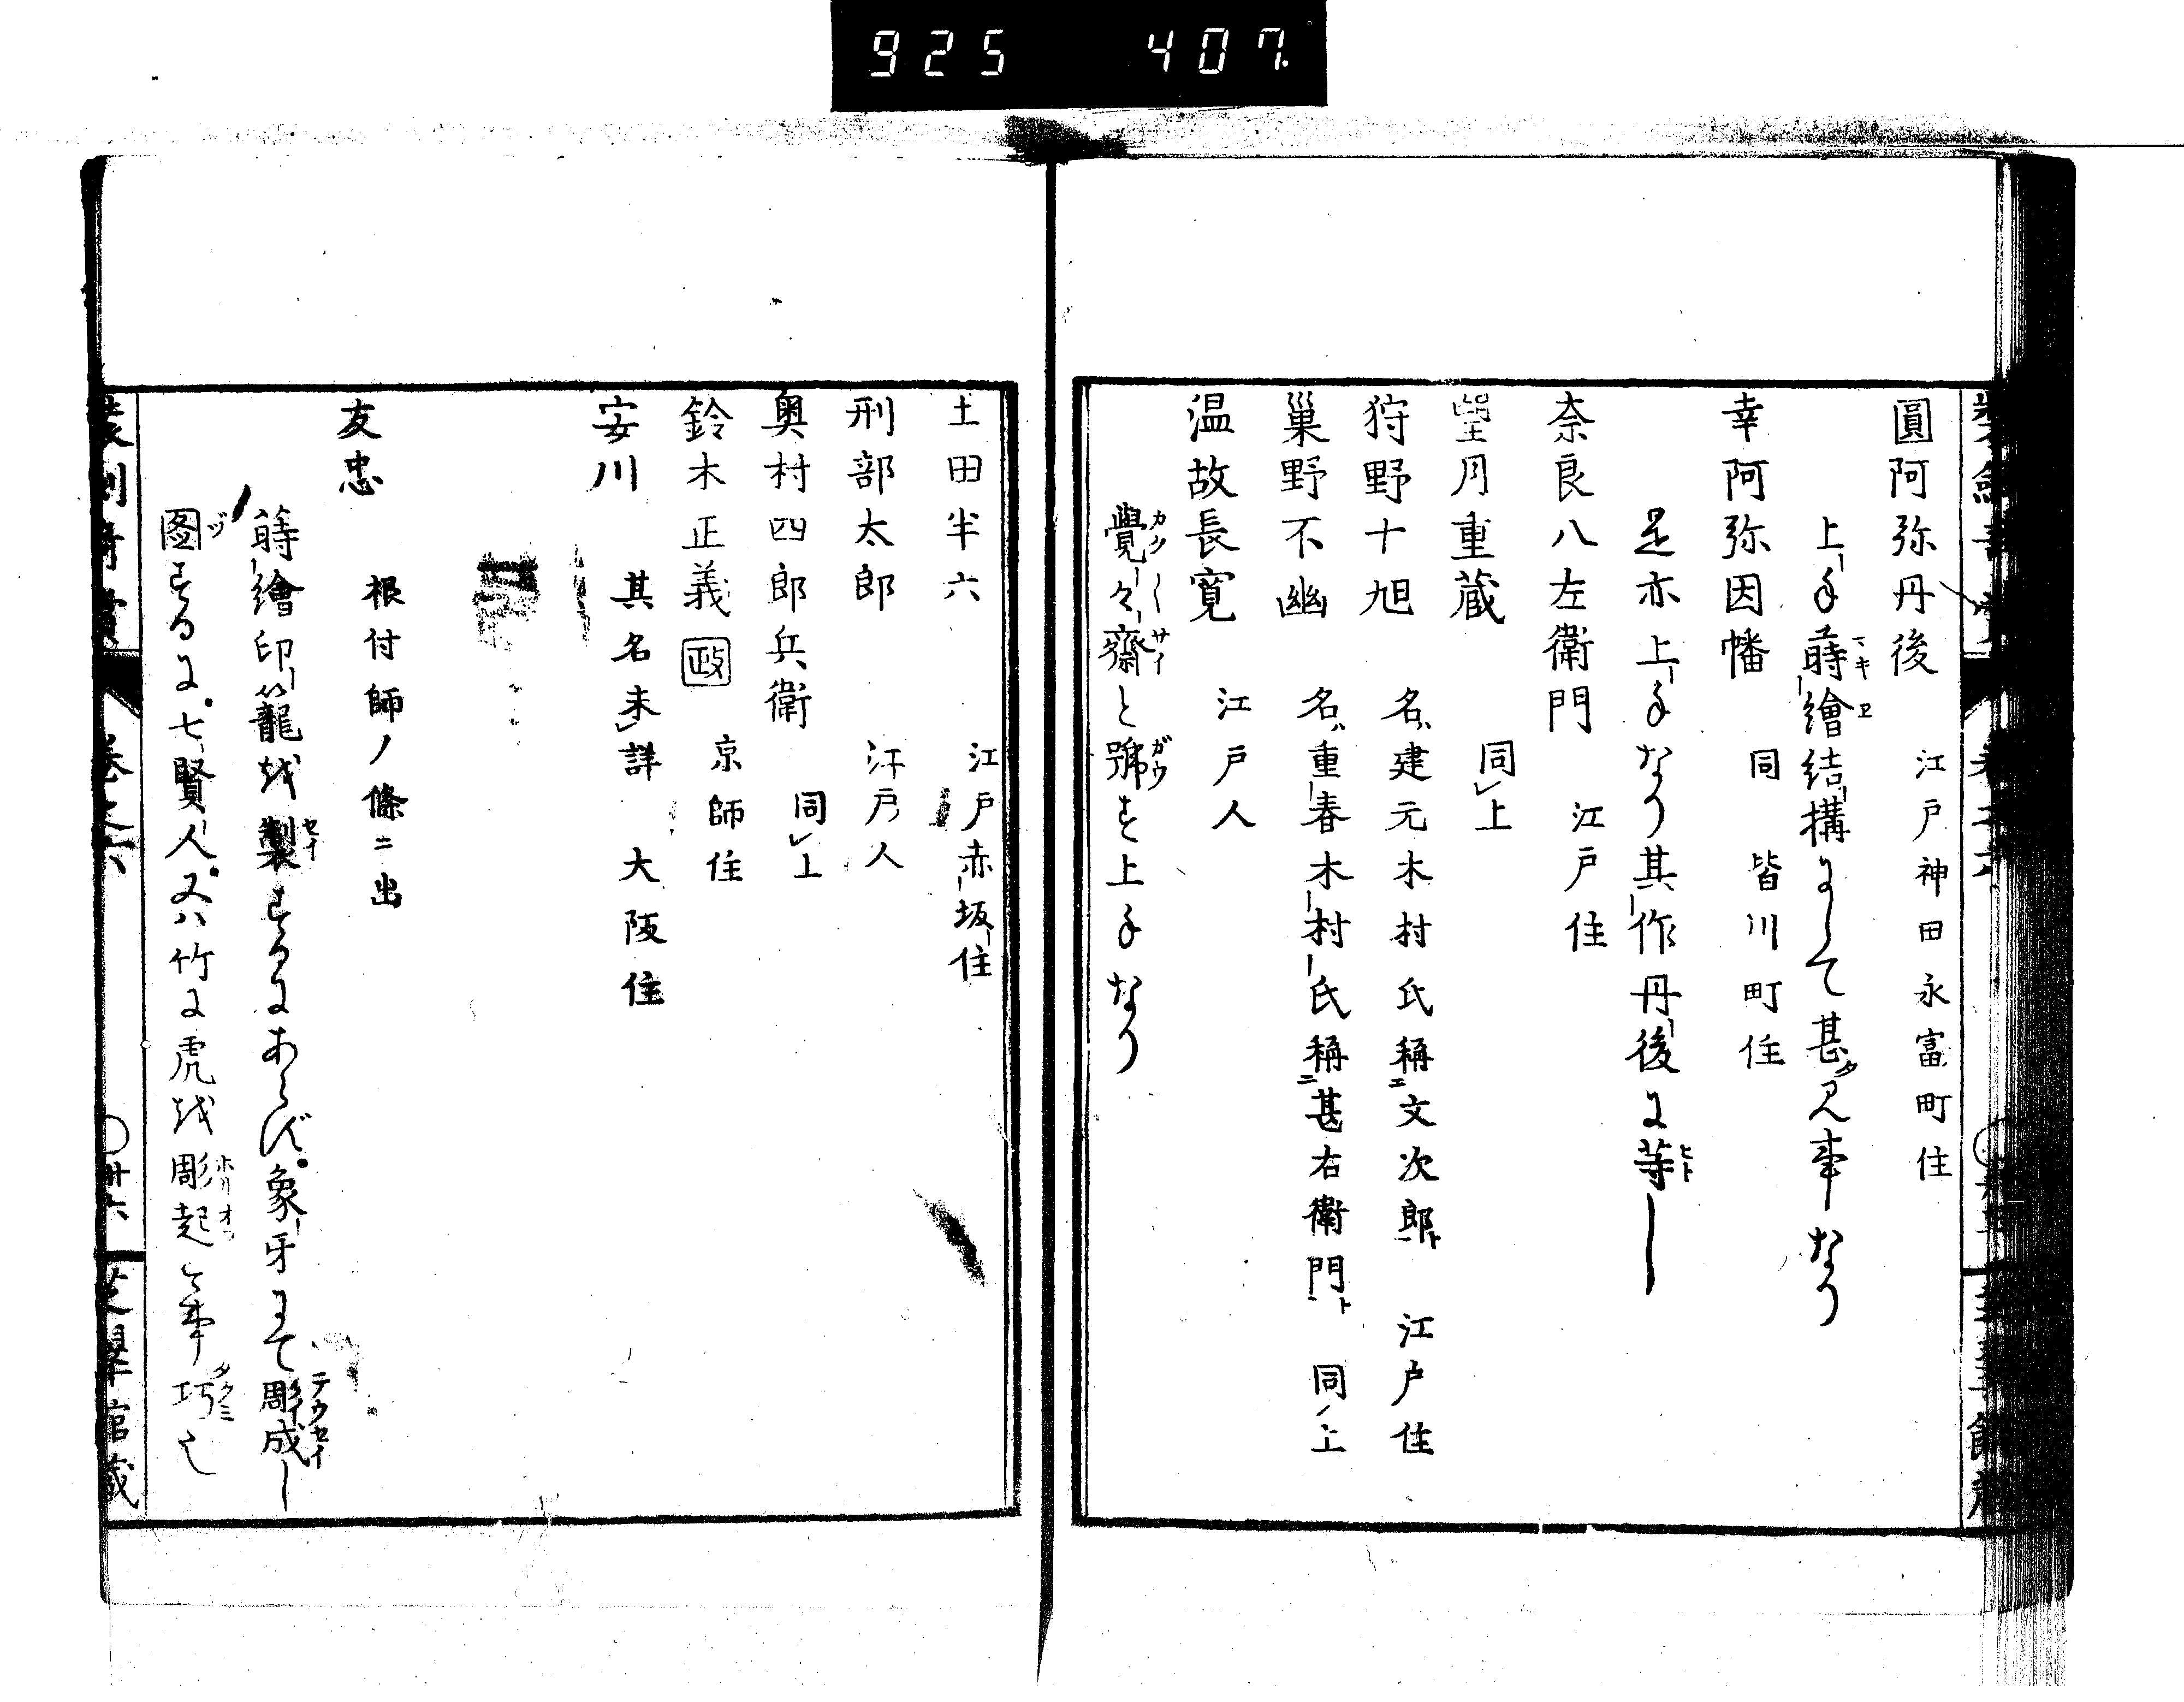 925 407
圓阿弥丹後 江戸神田永富町住
上手蒔繪結構にして甚タ見事なり
幸阿弥因幡 同 皆川町住
是亦上手なり其作丹後に等し
奈良八左衛門 江戸住
望月重蔵 同上
狩野十旭 名建元木村氏稱ニ文次郎ト 江戸住
巣野不幽 名重春木村氏稱ニ甚右衛門ト 同上
温故長寛 江戸人
覺々齋と號す上手なり
土田半六 江戸赤坂住
刑部太郎 江戸人
奥村四郎兵衛 同上
鈴木正義 政 京師住
安川 其名未詳 大阪住
友忠 根付師ノ條ニ出
蒔繪印籠を製するにあらず象牙にて彫成し
図するに七賢人又ハ竹に虎を彫起す事巧也
巻之六
卅六
芝翠館蔵